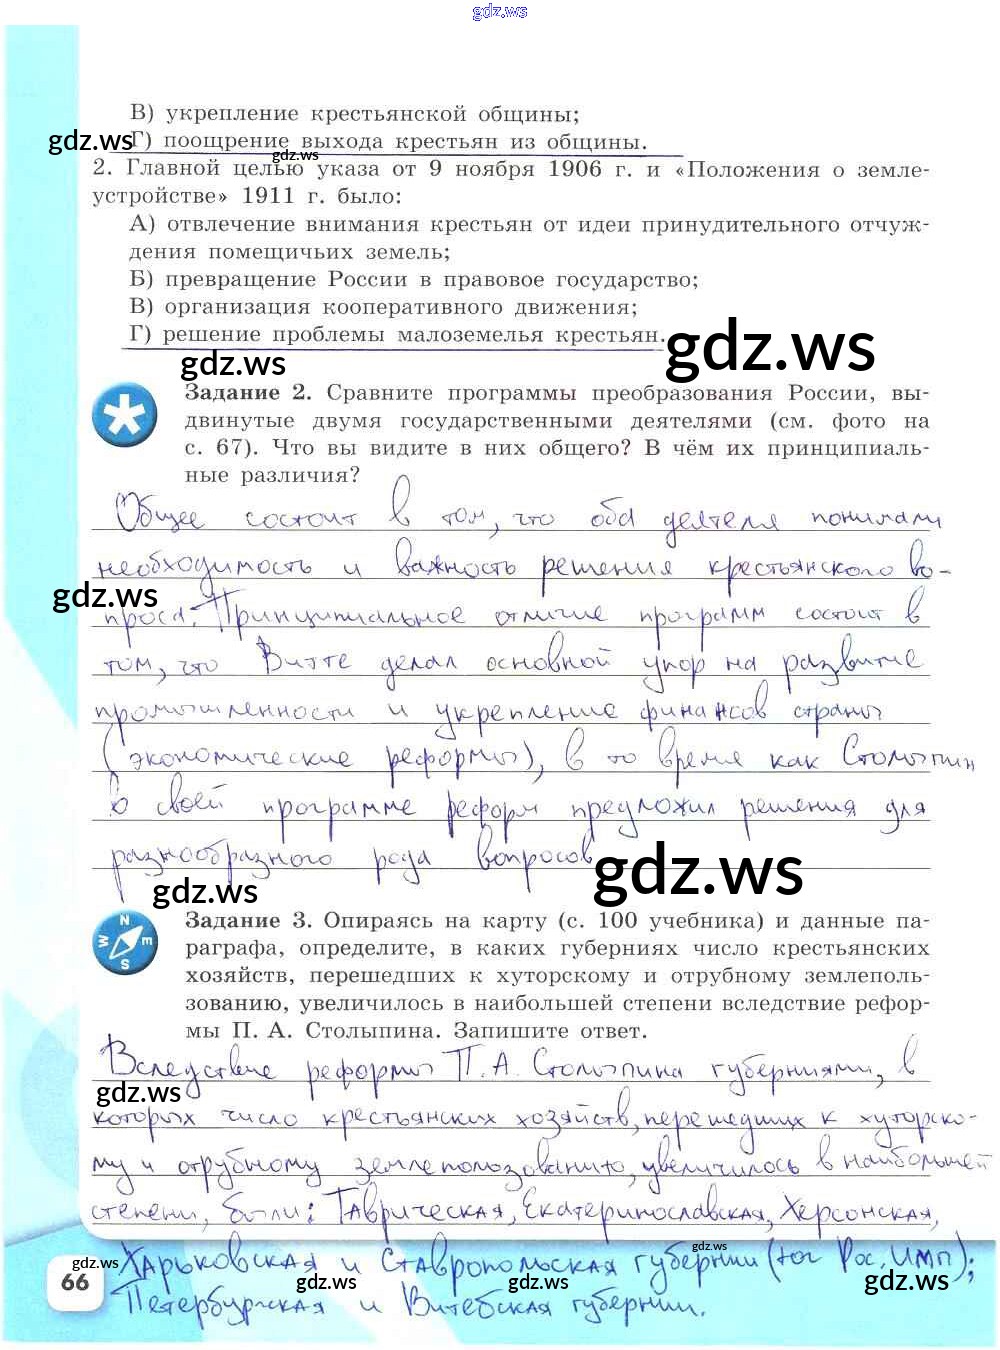 gdz.ws
В) укрепление крестьянской общины;
gdz.ws
Г) поощрение выхода крестьян из общины.
gdz.ws
2. Главной целью указа от 9 ноября 1906 г. и «Положения о земле-
устройстве» 1911 г. было:
А) отвлечение внимания крестьян от идеи принудительного отчуж-
дения помещичьих земель;
Б) превращение России в правовое государство;
В) организация кооперативного движения;
Г) решение проблемы малоземелья крестьян.
gdz.ws
gdz.ws
Задание 2. Сравните программы преобразования России, вы-
двинутые двумя государственными деятелями (см. фото на
с. 67). Что вы видите в них общего? В чём их принципиаль-
ные различия?
Общее состоит в том, что оба деятеля понимали
необходимость и важность решения крестьянского во-
gdz.ws
проса. Принципиальное отличие программ состоит в
том, что Витте делал основной упор на развитие
промышленности и укрепление финансов страны
(экономические реформы), в то время как Столыпин
в своей программе реформ предложил решения для
разнообразного рода вопросов
gdz.ws
gdz.ws
N
W E
S
Задание 3. Опираясь на карту (с. 100 учебника) и данные па-
раграфа, определите, в каких губерниях число крестьянских
хозяйств, перешедших к хуторскому и отрубному землеполь-
зованию, увеличилось в наибольшей степени вследствие рефор-
мы П. А. Столыпина. Запишите ответ.
Вследствие реформы П.А. Столыпина губерниями, в
gdz.ws
которых число крестьянских хозяйств, перешедших к хуторско-
му и отрубному землепользованию, увеличилось в наибольшей
степени, были: Таврическая, Екатеринославская, Херсонская,
gdz.ws
gdz.ws
Харьковская и Ставропольская губернии (юг Рос. Имп);
66
gdz.ws
gdz.ws
Петербургская и Витебская губернии.